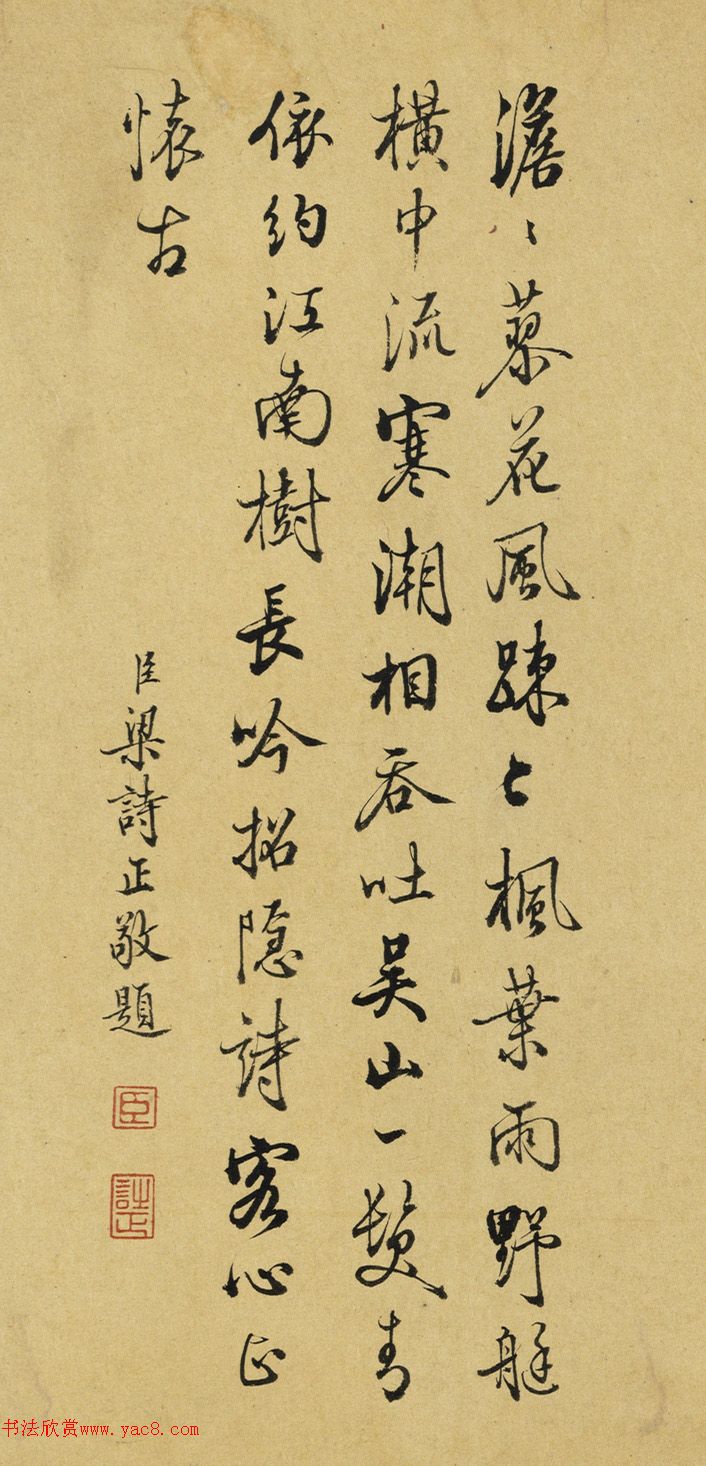 澹〻蓼花風踈〻楓葉雨野艇
橫中流寒潮相吞吐吳山一髮青
依約江南樹長吟招隱詩客心正
懷古
臣梁詩正敬題
臣
詩正
书法欣赏www.yac8.com